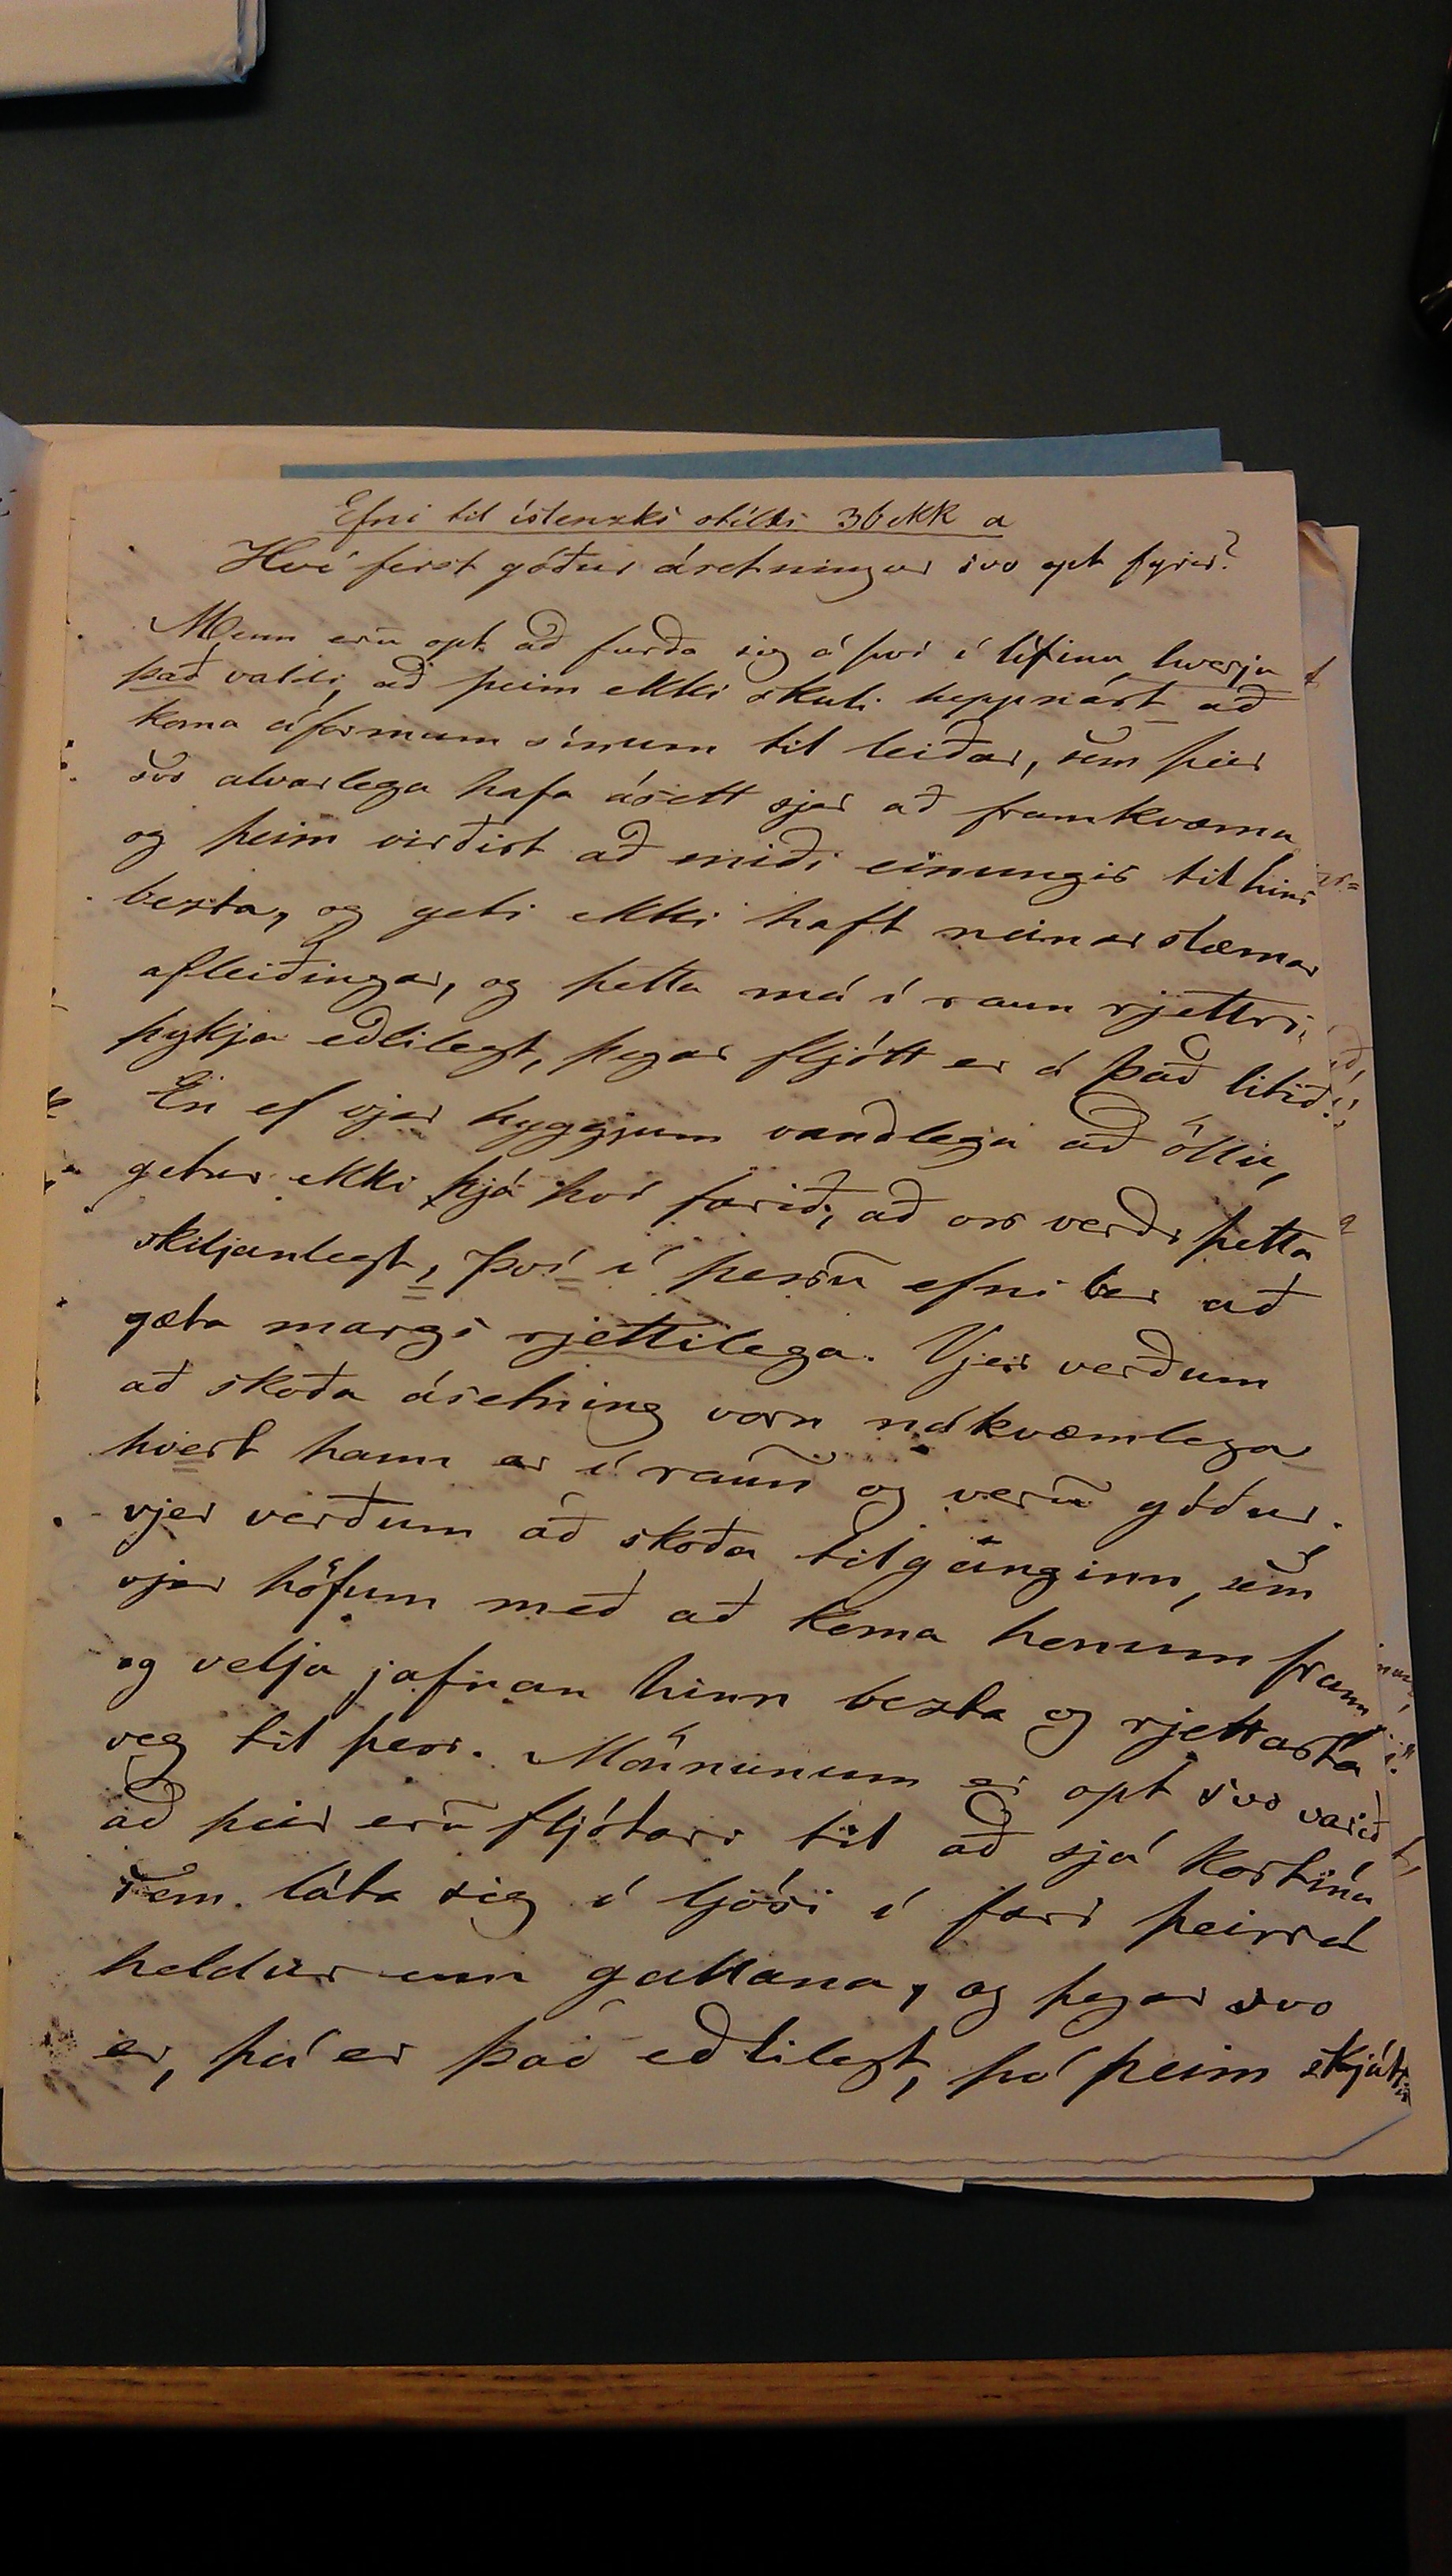 Efni til íslenzks stíls 3b kk a
Hví ferst góður ásetningur svo opt fyrir?
Menn eru opt að furða sig á því í lífinu hverju
það valdi, að þeim ekki skuli heppnast að
koma áformum sínum til leiðar, sem þeir
svo alvarlega hafa ásett sjer að framkvæma
og þeim virðist að miði einungis til hins
bezta, og geti ekki haft neinar slæmar
afleiðingar, og þetta má í raun rjettri
þykja eðlilegt, þegar fljótt er á það litið.
En ef vjer hyggjum vandlega að öllu,
getur ekki hjá því farið, að oss verði þetta
skiljanlegt, því í þessu efni ber að
gæta margs rjettilega. Vjer verðum
að skoða ásetning vorn nákvæmlega
hvert hann er í raun og veru góður.
vjer verðum að skoða tilgánginn, sem
vjer höfum með að koma honum fram
og velja jafnan hinn bezta og rjettasta
veg til þess. Mönnunum er opt svo varið
að þeir eru fljótari til að sjá kostina
sem láta sig í ljósi í fari þeirra
heldur enn gallana, og þegar svo
er, þá er það eðlilegt, þó þeim skjátli